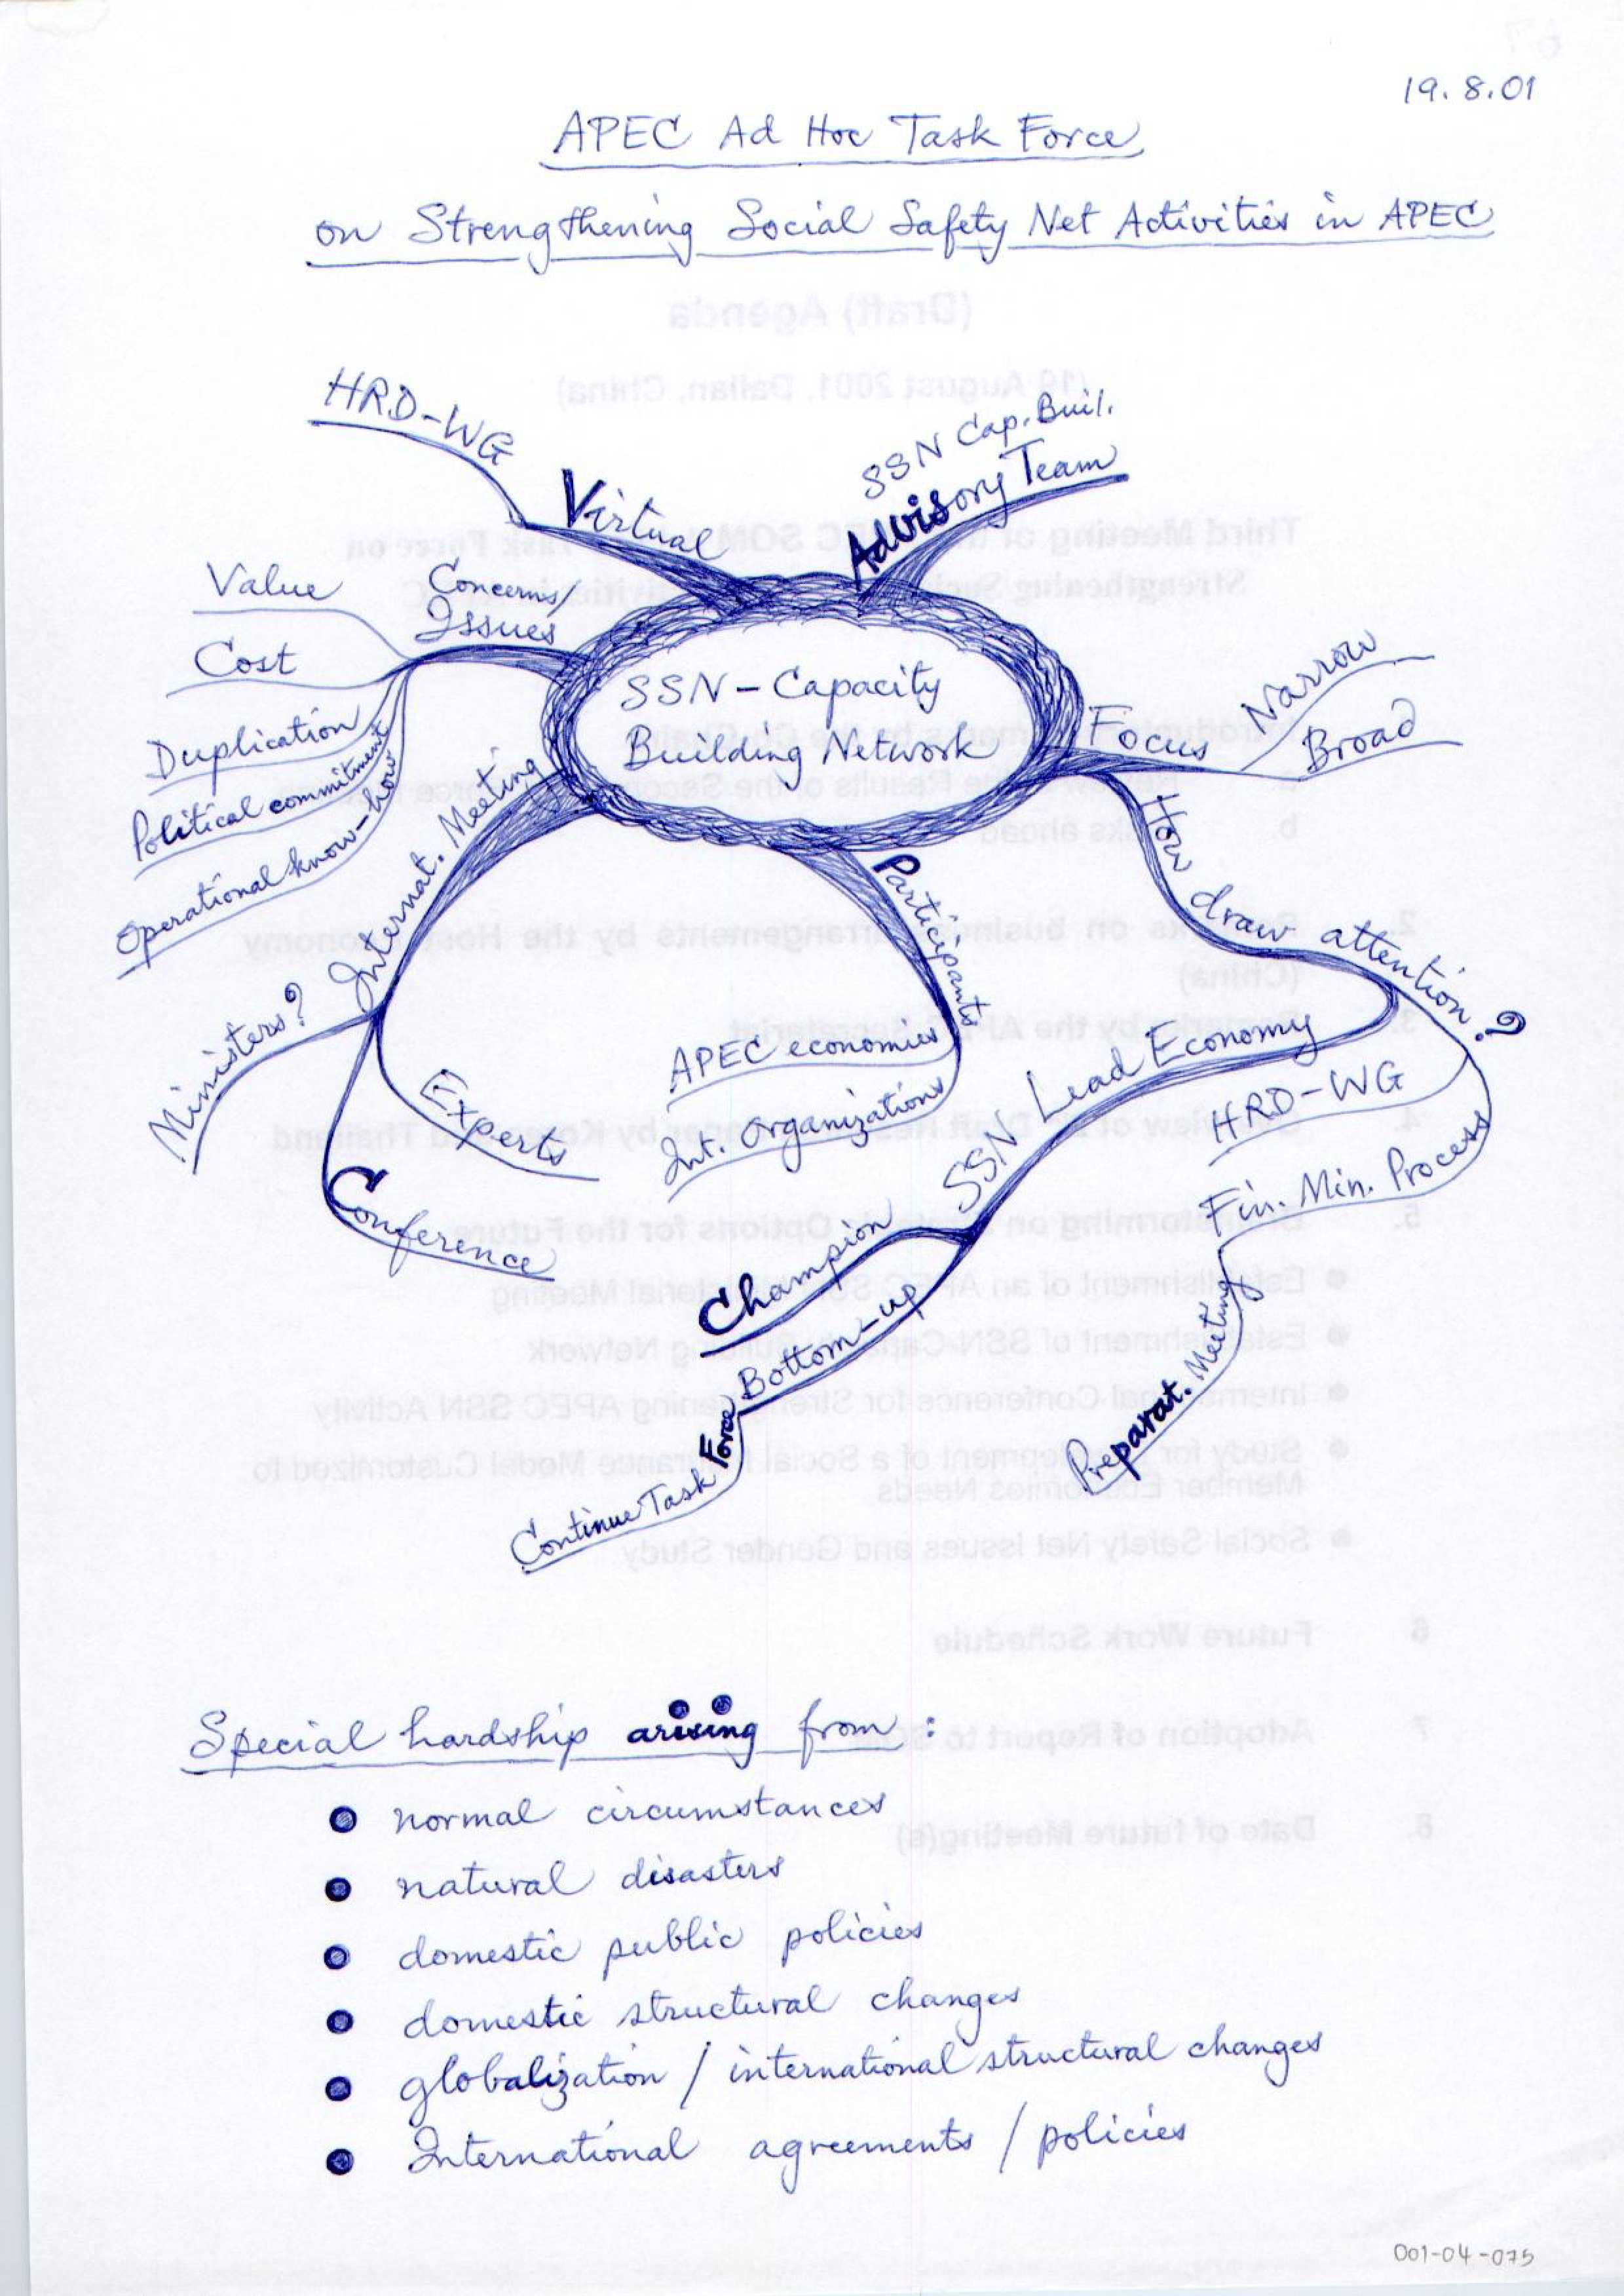 19.8.01
APEC Ad Hoc Task Force
on Strengthening Social Safety Net Activities in APEC
(Draft) Agenda
(19 August 2001, Dalian, China)
HRD-WG
Virtual
SSN Cap. Buil.
Advisory Team
Concerns/
Issues
Value
Cost
Duplication
Political commitment
Operational know-how
SSN-Capacity
Building Network
Focus
Narrow
Broad
Internat. Meeting
Ministers?
Experts
Conference
Participants
APEC economies
Int. Organizations
How draw attention?
HRD-WG
Fin. Min. Process
Preparat. Meeting
SSN Lead Economy
Champion
Bottom-up
Continue Task Force
Special hardship arising from:
• normal circumstances
• natural disasters
• domestic public policies
• domestic structural changes
• globalization / international structural changes
• International agreements / policies
6 Future Work Schedule
7 Adoption of Report to
8 Date of future Meeting(s)
001-04-075